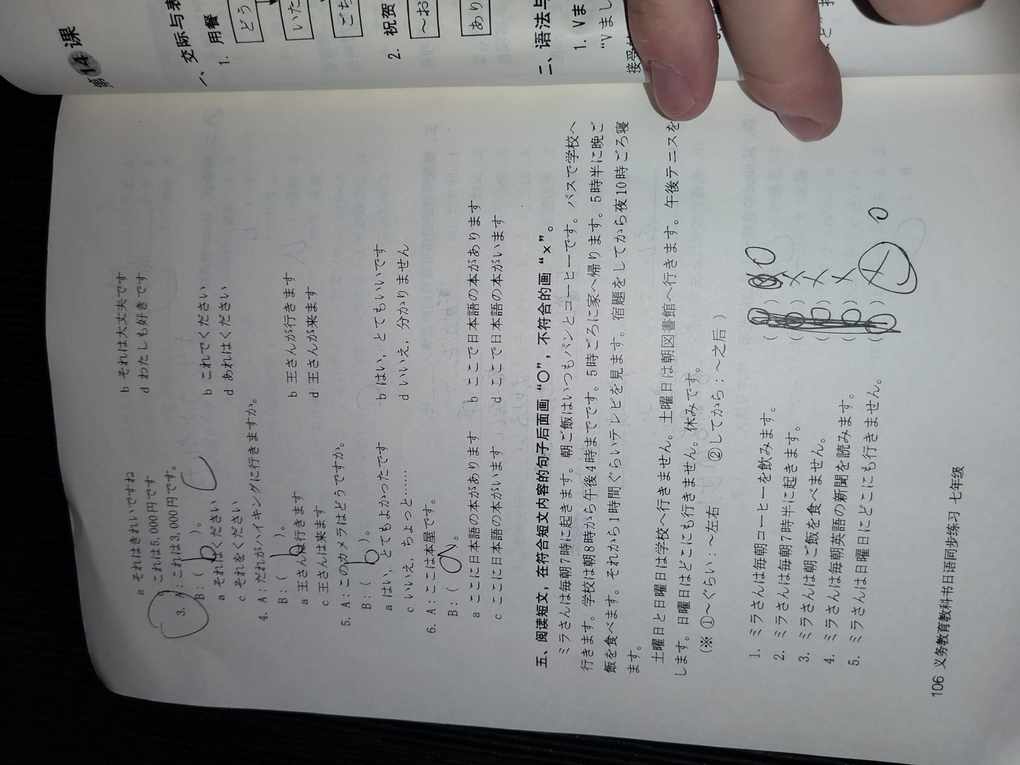 第14课
一、交际与表
1. 用餐
どう
いた
ごち
2. 祝贺
~お
あり
二、语法与
1. Vま
"Vまし
接受的
a それはきれいですね
b それは大丈夫です
c これは5,000円です
d わたしも好きです
3. A:これは3,000円です。
B:( b )。
a それはください
b これでください
c それをください
d あれはください
4. A:だれがハイキングに行きますか。
B:( b )。
a 王さんは行きます
b 王さんが行きます
c 王さんは来ます
d 王さんが来ます
5. A:このカメラはどうですか。
B:( b )。
a はい,とてもよかったです
b はい,とてもいいです
c いいえ,ちょっと……
d いいえ,分かりません
6. A:ここは本屋です。
B:( a )。
a ここに日本語の本があります
b ここで日本語の本があります
c ここに日本語の本がいます
d ここで日本語の本がいます
五、阅读短文,在符合短文内容的句子后面画"○",不符合的画"×"。
ミラさんは毎朝7時に起きます。朝ご飯はいつもパンとコーヒーです。バスで学校へ
行きます。学校は朝8時から午後4時までです。5時ごろに家へ帰ります。5時半に晩ご
飯を食べます。それから1時間ぐらいテレビを見ます。宿題をしてから夜10時ごろ寝
ます。
土曜日と日曜日は学校へ行きません。土曜日は朝図書館へ行きます。午後テニスを
します。日曜日はどこにも行きません。休みです。
(※ ①~ぐらい:~左右 ②してから:~之后)
1. ミラさんは毎朝コーヒーを飲みます。 ( ) ○
2. ミラさんは毎朝7時半に起きます。 ( ) ×
3. ミラさんは朝ご飯を食べません。 ( ) ×
4. ミラさんは毎朝英語の新聞を読みます。 ( ) ×
5. ミラさんは日曜日にどこにも行きません。 ( ) ○
106 义务教育教科书日语同步练习 七年级